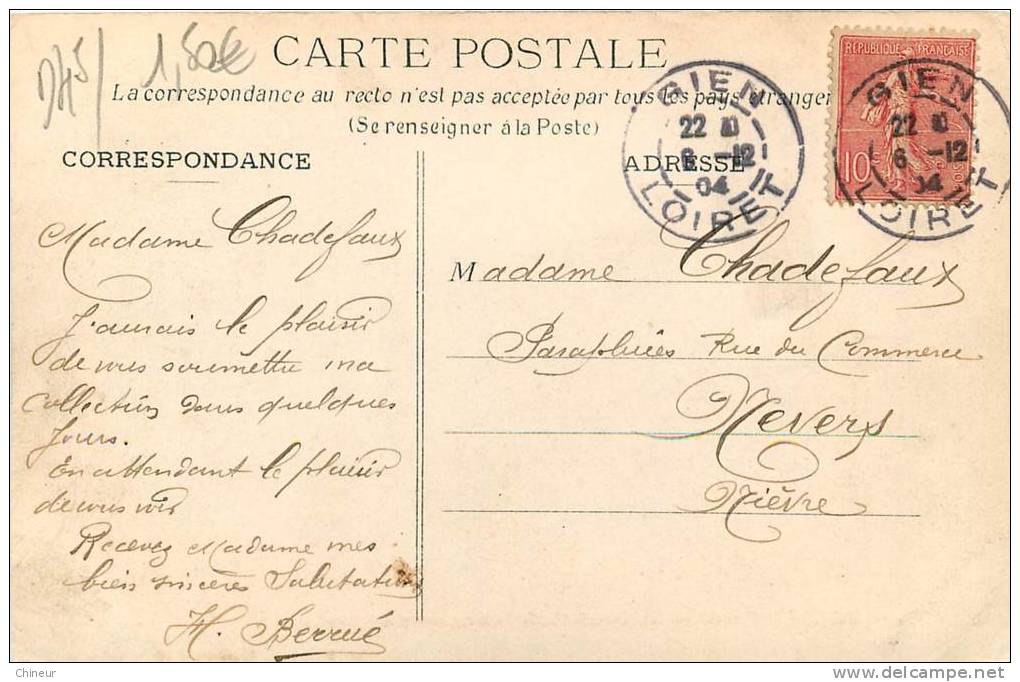 1,50€
CARTE POSTALE
La correspondance au recto n'est pas acceptée par tous les pays étranger
(Se renseigner à la Poste)
REPUBLIQUE FRANÇAISE
10c
GIEN
22
6 -12
04
LOIRET
GIEN
22
6 -12
04
LOIRET
CORRESPONDANCE
ADRESSE
Madame Chadefaux
J'aurais le plaisir
de vous soumettre ma
collection dans quelques
jours.
En attendant le plaisir
de vous voir
Recevez Madame mes
bien sincères Salutations
H. Berrué
Madame Chadefaux
Parapluies Rue du Commerce
Nevers
Nièvre
Chineur
www.delcampe.net